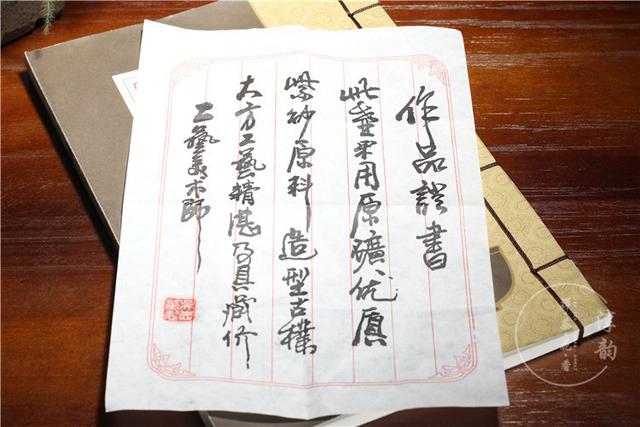 作品證書
此壺采用原礦优质
紫砂原料 造型古樸
大方工藝精湛乃具藏价
工藝美术師
淳韵